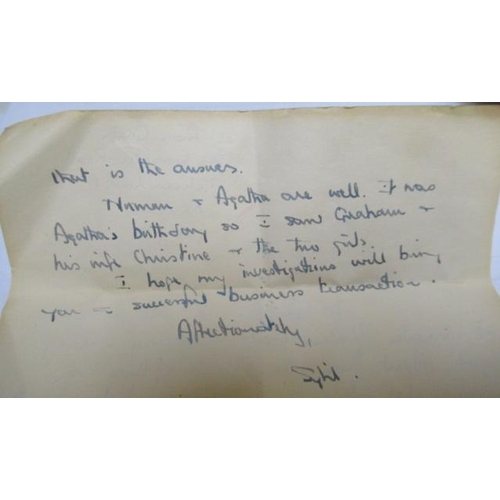 that is the answer.
Norman + Agatha are well. It was
Agatha's birthday so I saw Graham +
his wife Christine + the two girls.
I hope my investigations will bring
you a successful business transaction.
Affectionately,
Sybil.